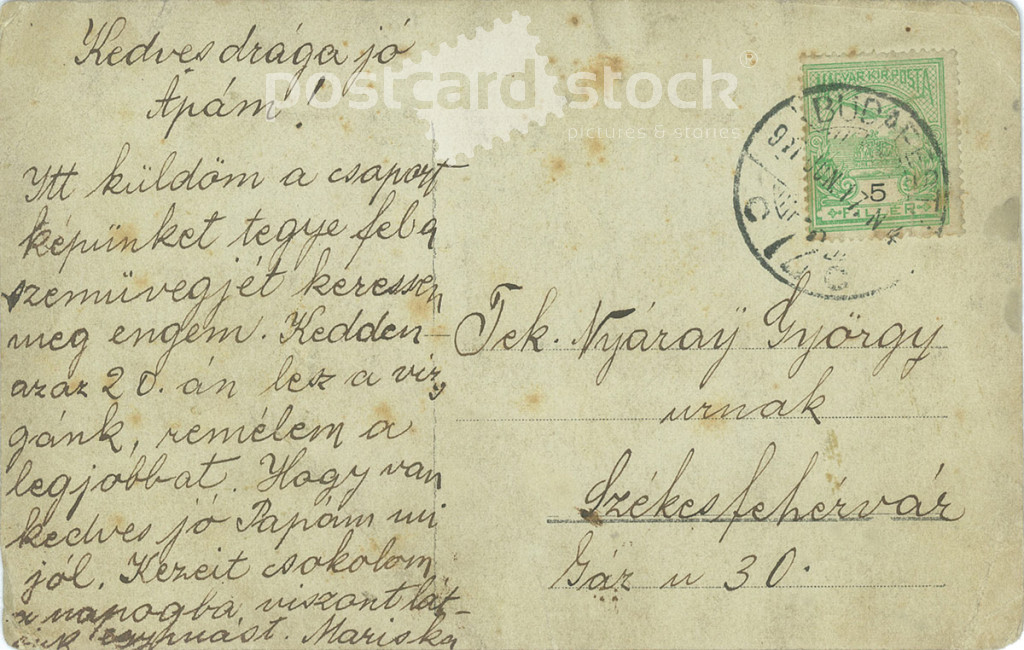 Kedves drága jó
Apám!
Itt küldöm a csaport
képünket tegye fel a
szemüvegjét keressen
meg engem. Kedden
azaz 20.án lesz a vizs
gánk, remélem a
legjobbat. Hogy van
kedves jó Papám mi
jól. Kezeit csokolom
napogba viszontlát-
egymást. Mariska
postcard stock
pictures & stories
MAGYAR KIR. POSTA
5
FILLÉR
BUDAPEST
Tek. Nyáraÿ György
urnak
Székesfehérvár
Gáz u 30.